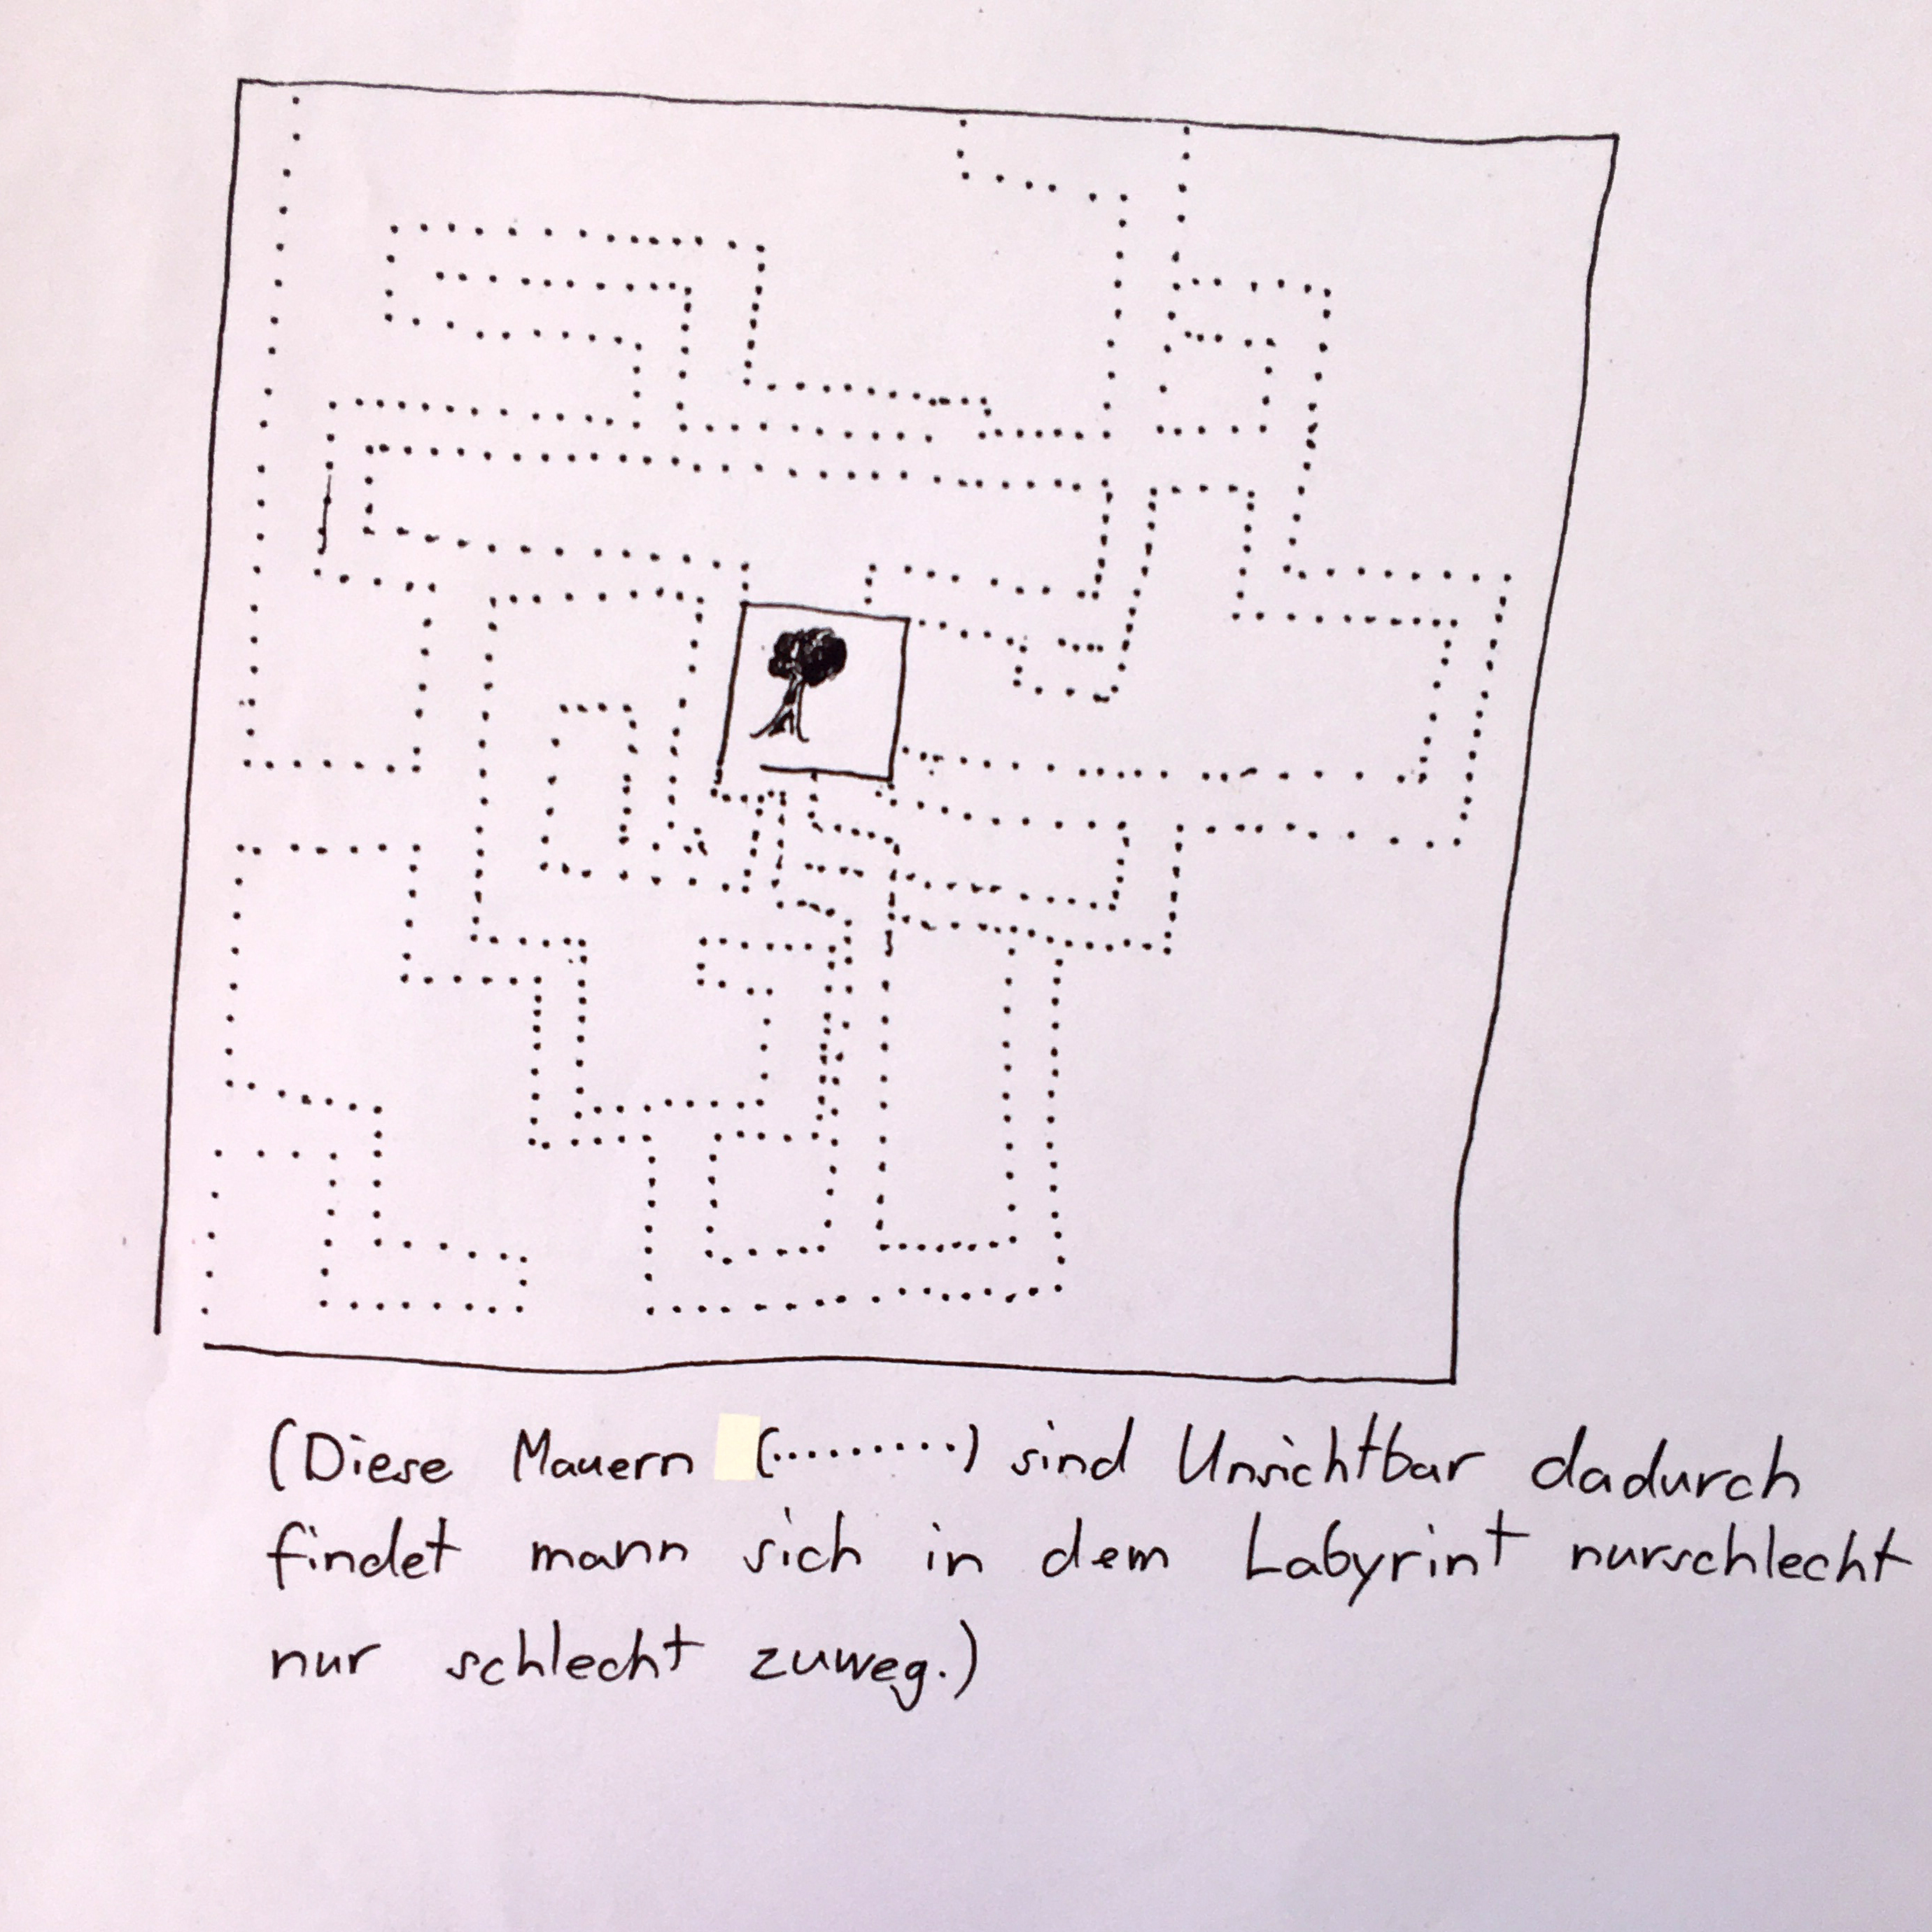 (Diese Mauern (.........) sind Unsichtbar dadurch
findet mann sich in dem Labyrint nurschlecht
nur schlecht zuweg.)